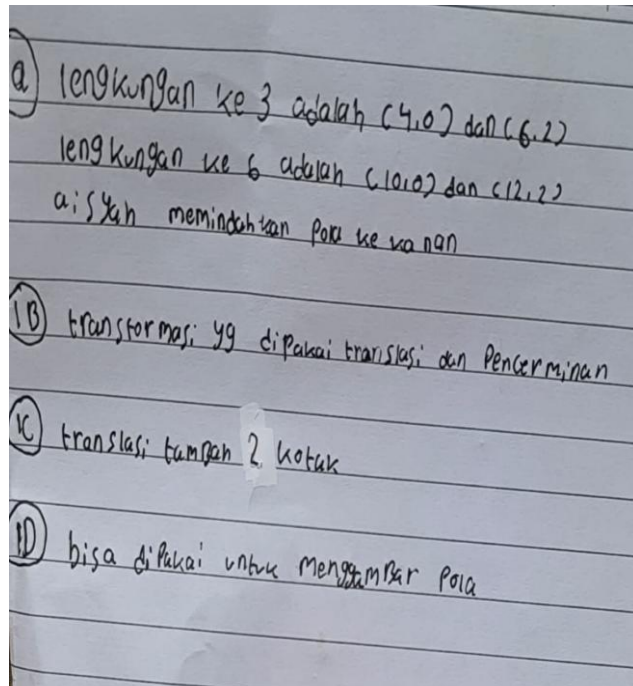 a) lengkungan ke 3 adalah (4,0) dan (6,2)
lengkungan ke 6 adalah (10,0) dan (12,2)
aisyah memindahkan pola ke kanan
1B) transformasi yg dipakai translasi dan Pencerminan
1C) translasi tambah 2 kotak
1D) bisa dipakai untuk menggambar Pola